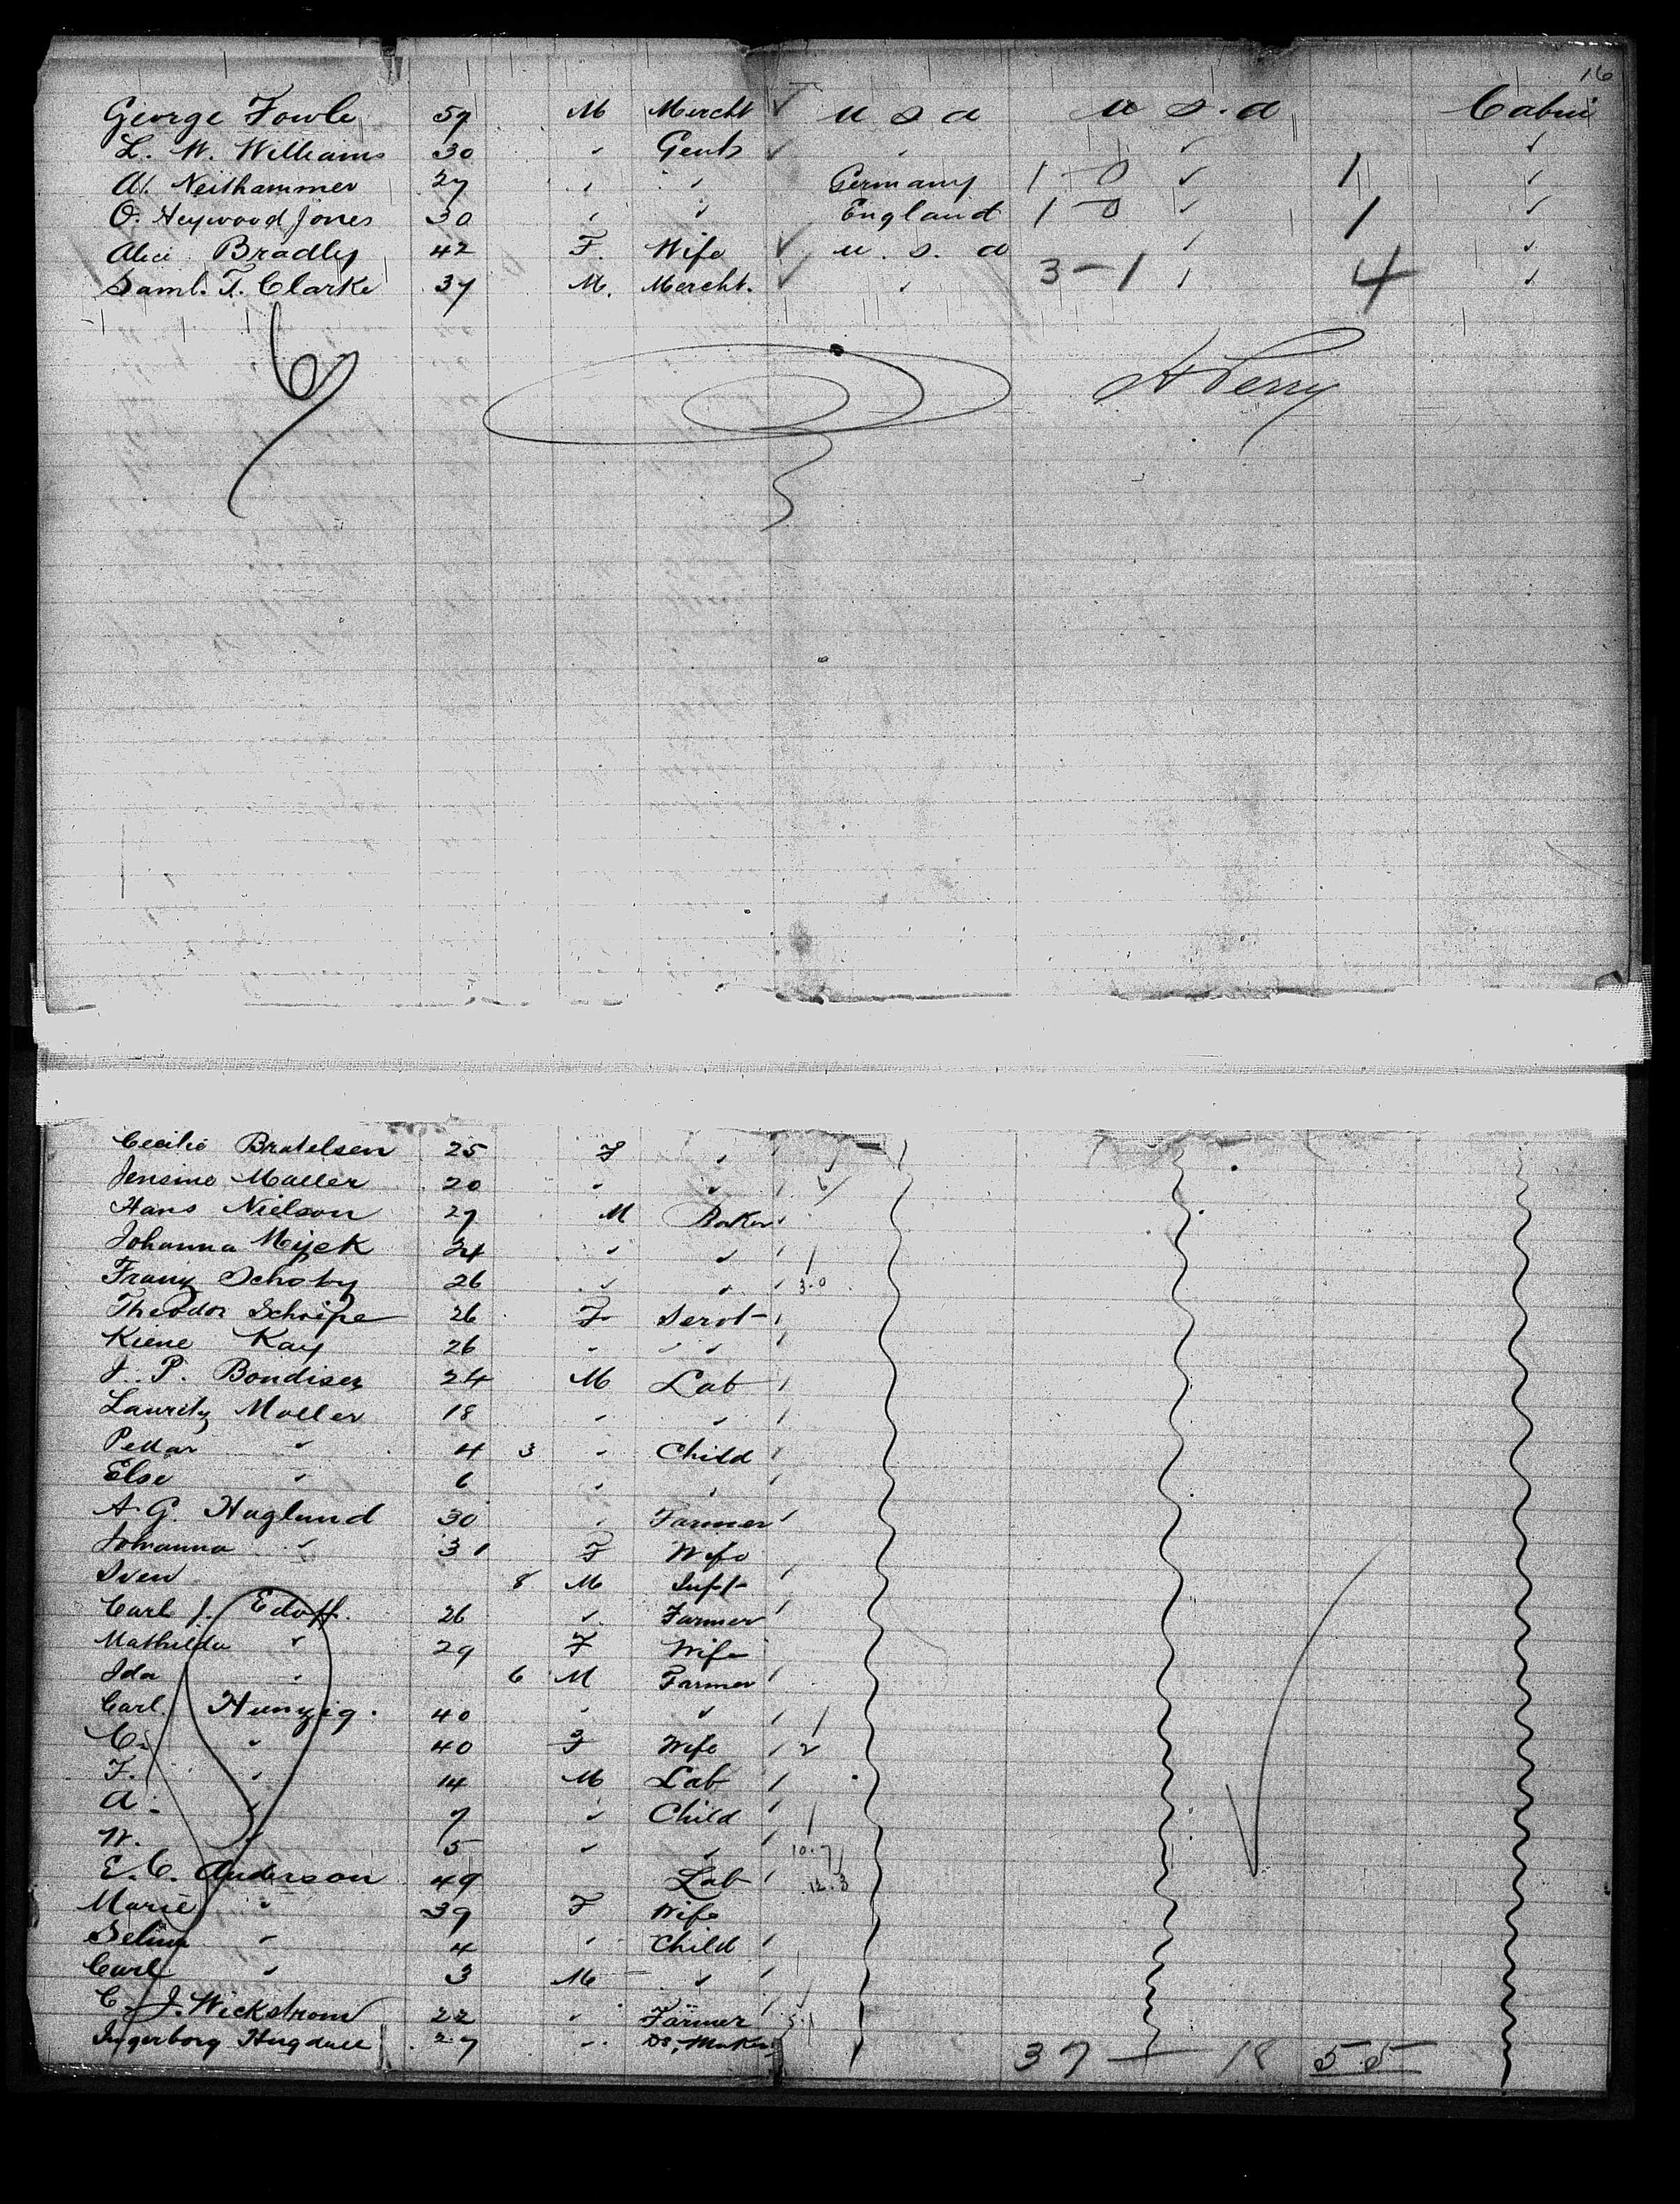 16
George Fowle 57 M Mercht ✓ U S A U S. A Cabin
L. W. Williams 30 " Gent ✓ " ✓ ✓
A. Neithammer 27 " " Germany 1 - 0 ✓ 1 ✓
O. Heywood Jones 30 " " England 1 - 0 ✓ 1 ✓
Alice Bradley 42 F. Wife ✓ U. S. A ✓ ✓
Saml. T. Clarke 37 M. Mercht. ✓ " 3 - 1 ✓ 4 ✓
6
Perry
Cecilie Bratelsen 25 F "
Jensine Maller 20 " "
Hans Nielson 27 M Baker
Johanna 24 " "
Franz 26 " " 3-0
Theodor 26 F Servt
Kiene Kay 26 " "
J. P. Bondisen 24 M Lab
Lauritz Moller 18 " "
Pettar " 4 3 " Child
Else " 6 " "
A. G. Haglund 30 " Farmer
Johanna " 31 F Wife
Sven 8 M Inft
Carl J. Edoff. 26 " Farmer
Mathilda " 29 F Wife
Ida " 6 M Farmer
Carl. Hunzig. 40 " "
C. " 40 F Wife 2
F. " 14 M Lab
A. " 7 " Child
W. " 5 " " 10-7
E. C. Anderson 49 Lab 12.3
Marie " 39 F Wife
Selina " 4 " Child
Carl " 3 M "
C. J. Wickstrom 22 " Farmer 5-1
Ingerborg 27 " Ds, Maker
37 + 18 55